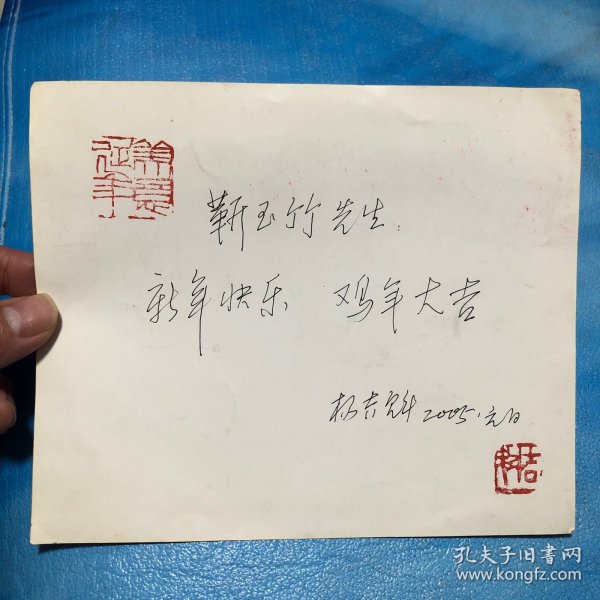 延年
靳玉竹先生：
新年快乐 鸡年大吉
杨吉魁 2005.元旦
孔夫子旧书网
www.kongfz.com